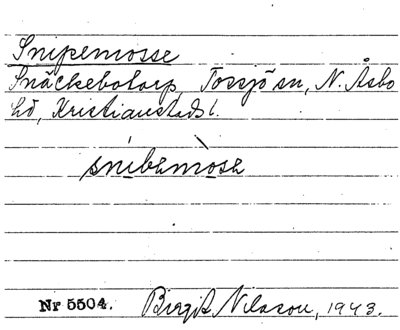 Snipemosse
Snäckebotorp, Tossjö sn, N. Åsbo
hd, Kristianstads l.
snibemosa
Nr 5504. Birgit Nilsson, 1943.